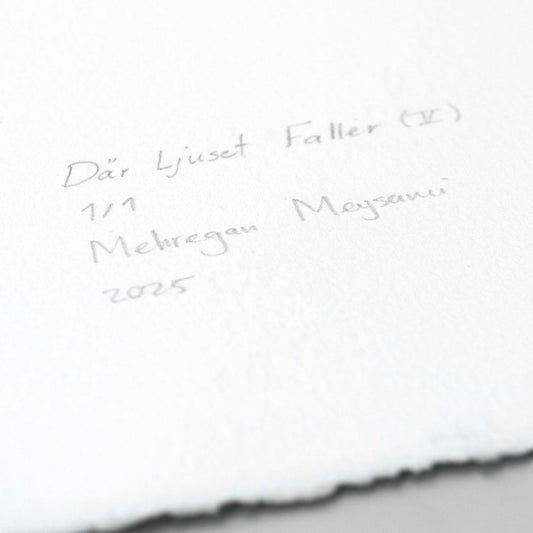 Där Ljuset Faller (V)
1/1
Mehregan Meysami
2025